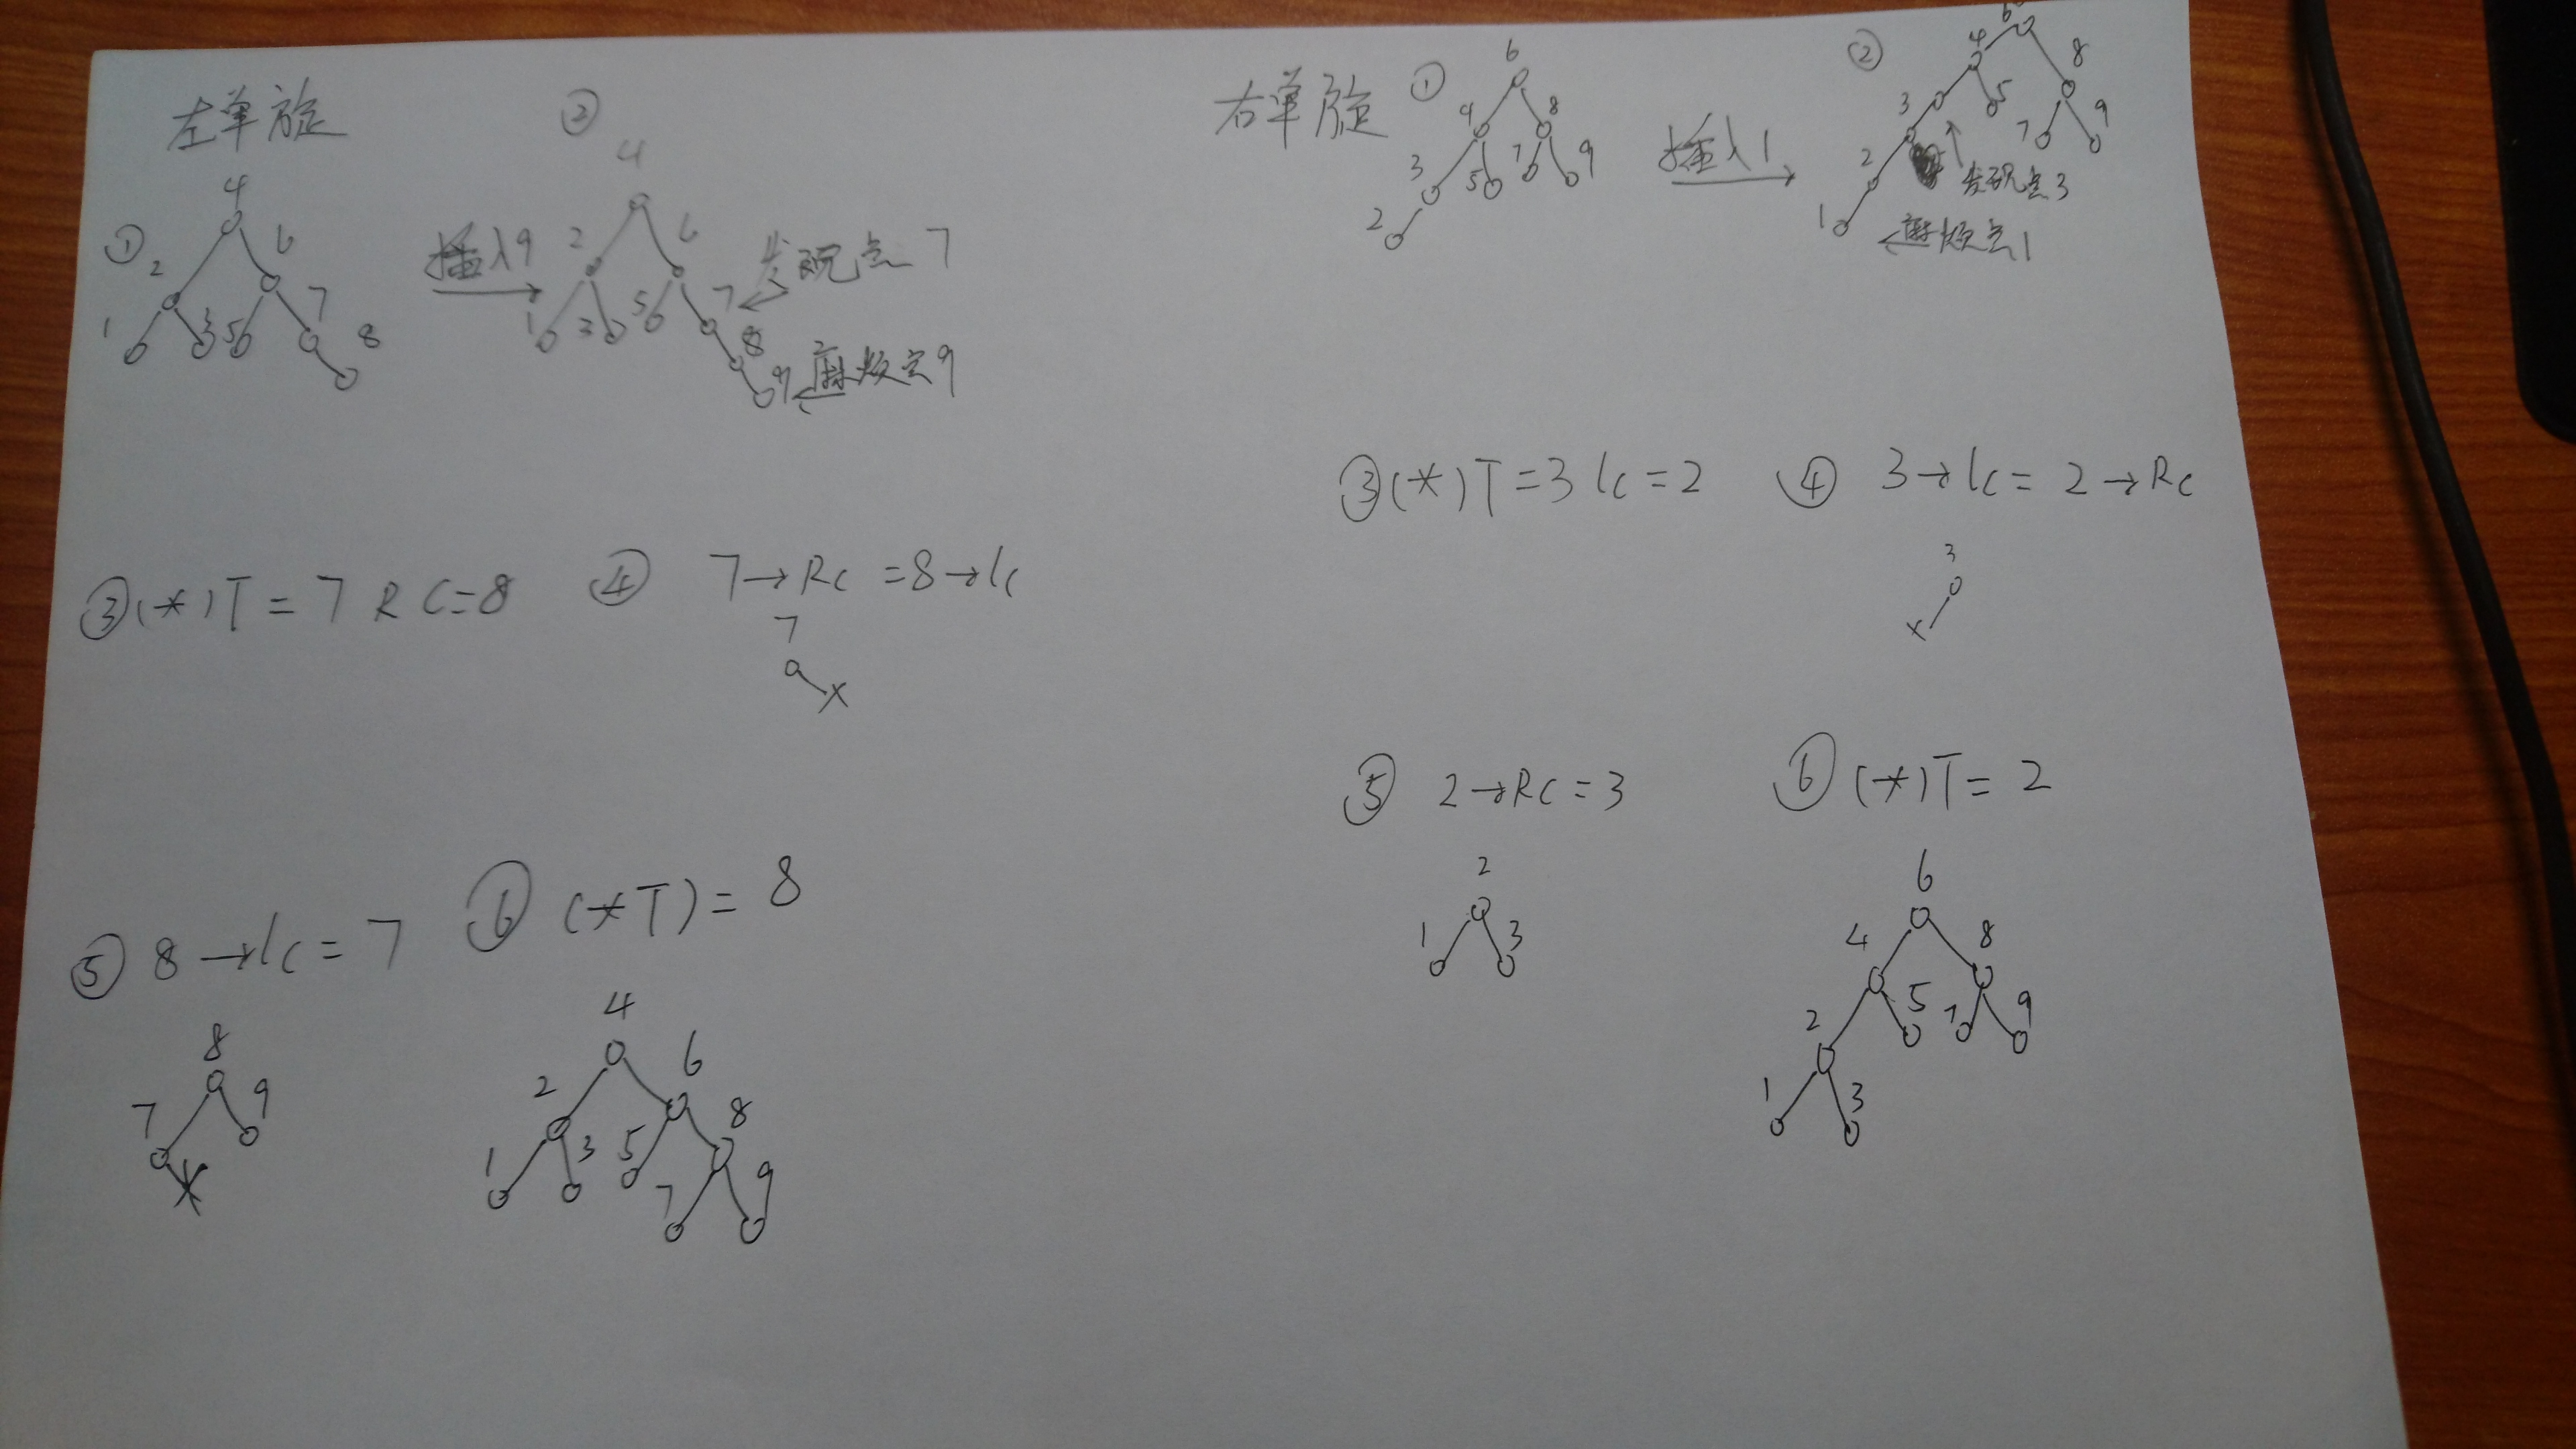 左单旋
①
4
2 6
1 3 5 7
8
插入9
②
4
2 6
1 3 5 7
8
9
发现点7
麻烦点9
③(*)T=7 RC=8
④ 7→Rc =8→lc
7
x
⑤ 8→lc=7
8
7 9
⑥ (*T)=8
4
2 6
1 3 5 8
7 9
右单旋
①
6
4 8
3 5 7 9
2
插入1
②
6
4 8
3 5 7 9
2
1
发现点3
麻烦点1
③(*)T=3 lc=2
④ 3→lc=2→Rc
3
x
⑤ 2→RC=3
2
1 3
⑥ (*)T=2
6
4 8
2 5 7 9
1 3